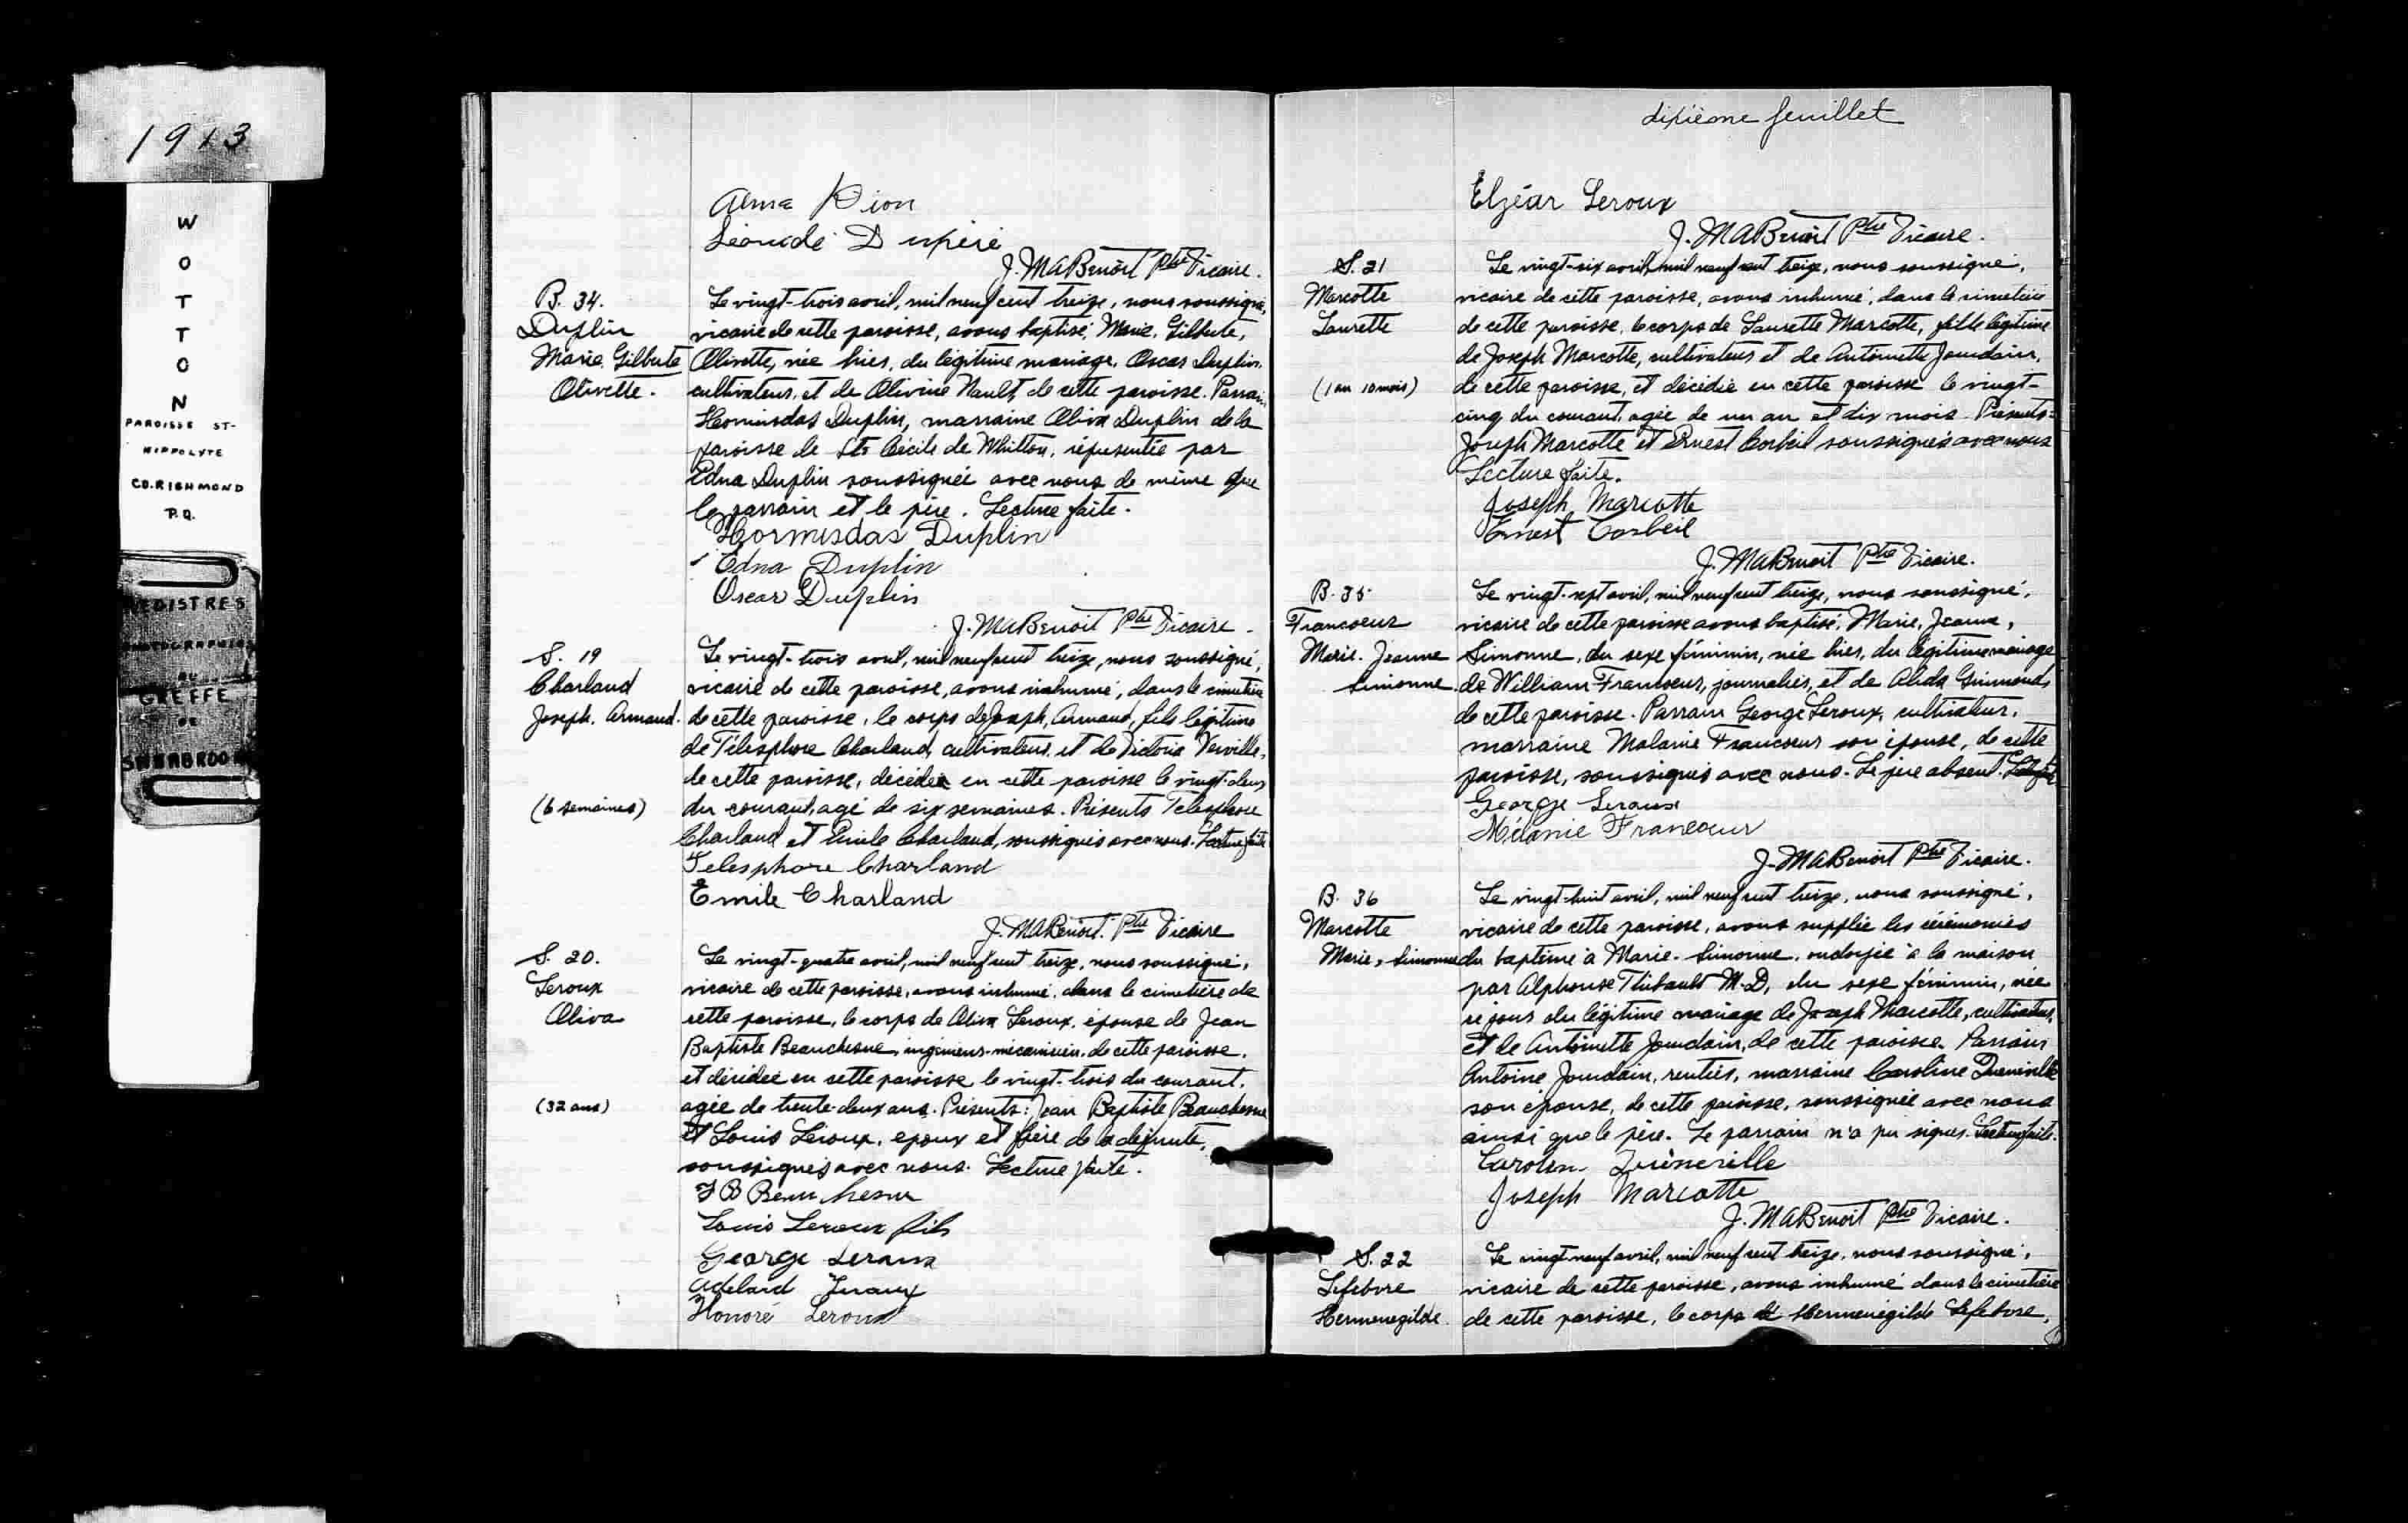 1913
W
O
T
T
O
N
PAROISSE ST-
HIPPOLYTE
CO. RICHMOND
P.Q.
REGISTRES
PHOTOGRAPHIES
AU
GREFFE
DE
SHERBROOKE
Alma Dion
Léonide Dupéré
J. MABenoit Ptre Vicaire.
B. 34.
Duplin
Marie Gilberte
Olivette.
Le vingt-trois avril, mil neuf cent treize, nous soussigné,
vicaire de cette paroisse, avons baptisé, Marie, Gilberte,
Olivette, née hier, du légitime mariage, Oscar Duplin,
cultivateur, et de Olivine Nault, de cette paroisse. Parrain
Hormisdas Duplin, marraine Oliva Duplin de la
paroisse de Ste Cécile de Whitton, répresentée par
Edna Duplin soussignée avec nous de même que
le parrain et le père. Lecture faite.
Hormisdas Duplin
Edna Duplin
Oscar Duplin
J. MABenoit Ptre Vicaire.
S. 19
Charland
Joseph. Armand.
(6 semaines)
Le vingt-trois avril, mil neuf cent treize, nous soussigné,
vicaire de cette paroisse, avons inhumé, dans le cimetière
de cette paroisse, le corps de Joseph, Armand, fils légitime
de Télesphore Charland, cultivateur, et de Victoria Verville,
de cette paroisse, décédé en cette paroisse le vingt-deux
du courant, agé de six semaines. Présents Télesphore
Charland et Emile Charland, soussignés avec nous. Lecture faite
Telesphore Charland
Emile Charland
J. MABenoit. Ptre Vicaire
S. 20.
Leroux
Oliva
(32 ans)
Le vingt-quatre avril, mil neuf cent treize, nous soussigné,
vicaire de cette paroisse, avons inhumé, dans le cimetière de
cette paroisse, le corps de Oliva Leroux, épouse de Jean
Baptiste Beauchesne, ingénieur-mécanicien, de cette paroisse,
et décédée en cette paroisse le vingt-trois du courant,
agée de trente-deux ans. Présents: Jean Baptiste Beauchesne
et Louis Leroux, époux et frère de la défunte,
soussignés avec nous. Lecture faite.
J B Beauchesne
Louis Leroux fils
George Leroux
Adelard Leroux
Honoré Leroux
dixième feuillet
Elzéar Leroux
J. MABenoit Ptre Vicaire.
S. 21
Marcotte
Laurette
(1 an 10 mois)
Le vingt-six avril, mil neuf cent treize, nous soussigné,
vicaire de cette paroisse, avons inhumé, dans le cimetière
de cette paroisse, le corps de Laurette Marcotte, fille légitime
de Joseph Marcotte, cultivateur et de Antoinette Jourdain,
de cette paroisse, et décédée en cette paroisse le vingt-
cinq du courant, agée de un an et dix mois. Présents:
Joseph Marcotte et Ernest Corbeil soussignés avec nous
Lecture faite.
Joseph Marcotte
Ernest Corbeil
J. MABenoit Ptre Vicaire.
B. 35
Francoeur
Marie. Jeanne
Simonne.
Le vingt-sept avril, mil neuf cent treize, nous soussigné,
vicaire de cette paroisse avons baptisé, Marie, Jeanne,
Simonne, du sexe féminin, née hier, du légitime mariage
de William Francoeur, journalier, et de Alida Grimond,
de cette paroisse. Parrain George Leroux, cultivateur,
marraine Mélanie Francoeur son épouse, de cette
paroisse, soussignés avec nous. Le père absent.
George Leroux
Mélanie Francoeur
J. MABenoit Ptre Vicaire.
B. 36
Marcotte
Marie, Simonne
Le vingt-huit avril, mil neuf cent treize, nous soussigné,
vicaire de cette paroisse, avons supplée les cérémonies
du baptême à Marie. Simonne, ondoyée à la maison
par Alphonse Thibault M.D, du sexe féminin, née
ce jour du légitime mariage de Joseph Marcotte, cultivateur,
et de Antoinette Jourdain, de cette paroisse. Parrain
Antoine Jourdain, rentier, marraine Caroline Quenneville
son épouse, de cette paroisse, soussignée avec nous
ainsi que le père. Le parrain n'a pu signer. Lecture faite.
Joseph Marcotte
J. MABenoit Ptre Vicaire.
S. 22
Lefebvre
Hermenegilde.
Le vingt-neuf avril, mil neuf cent treize, nous soussigné,
vicaire de cette paroisse, avons inhumé dans le cimetière
de cette paroisse, le corps de Hermenégilde Lefebvre,